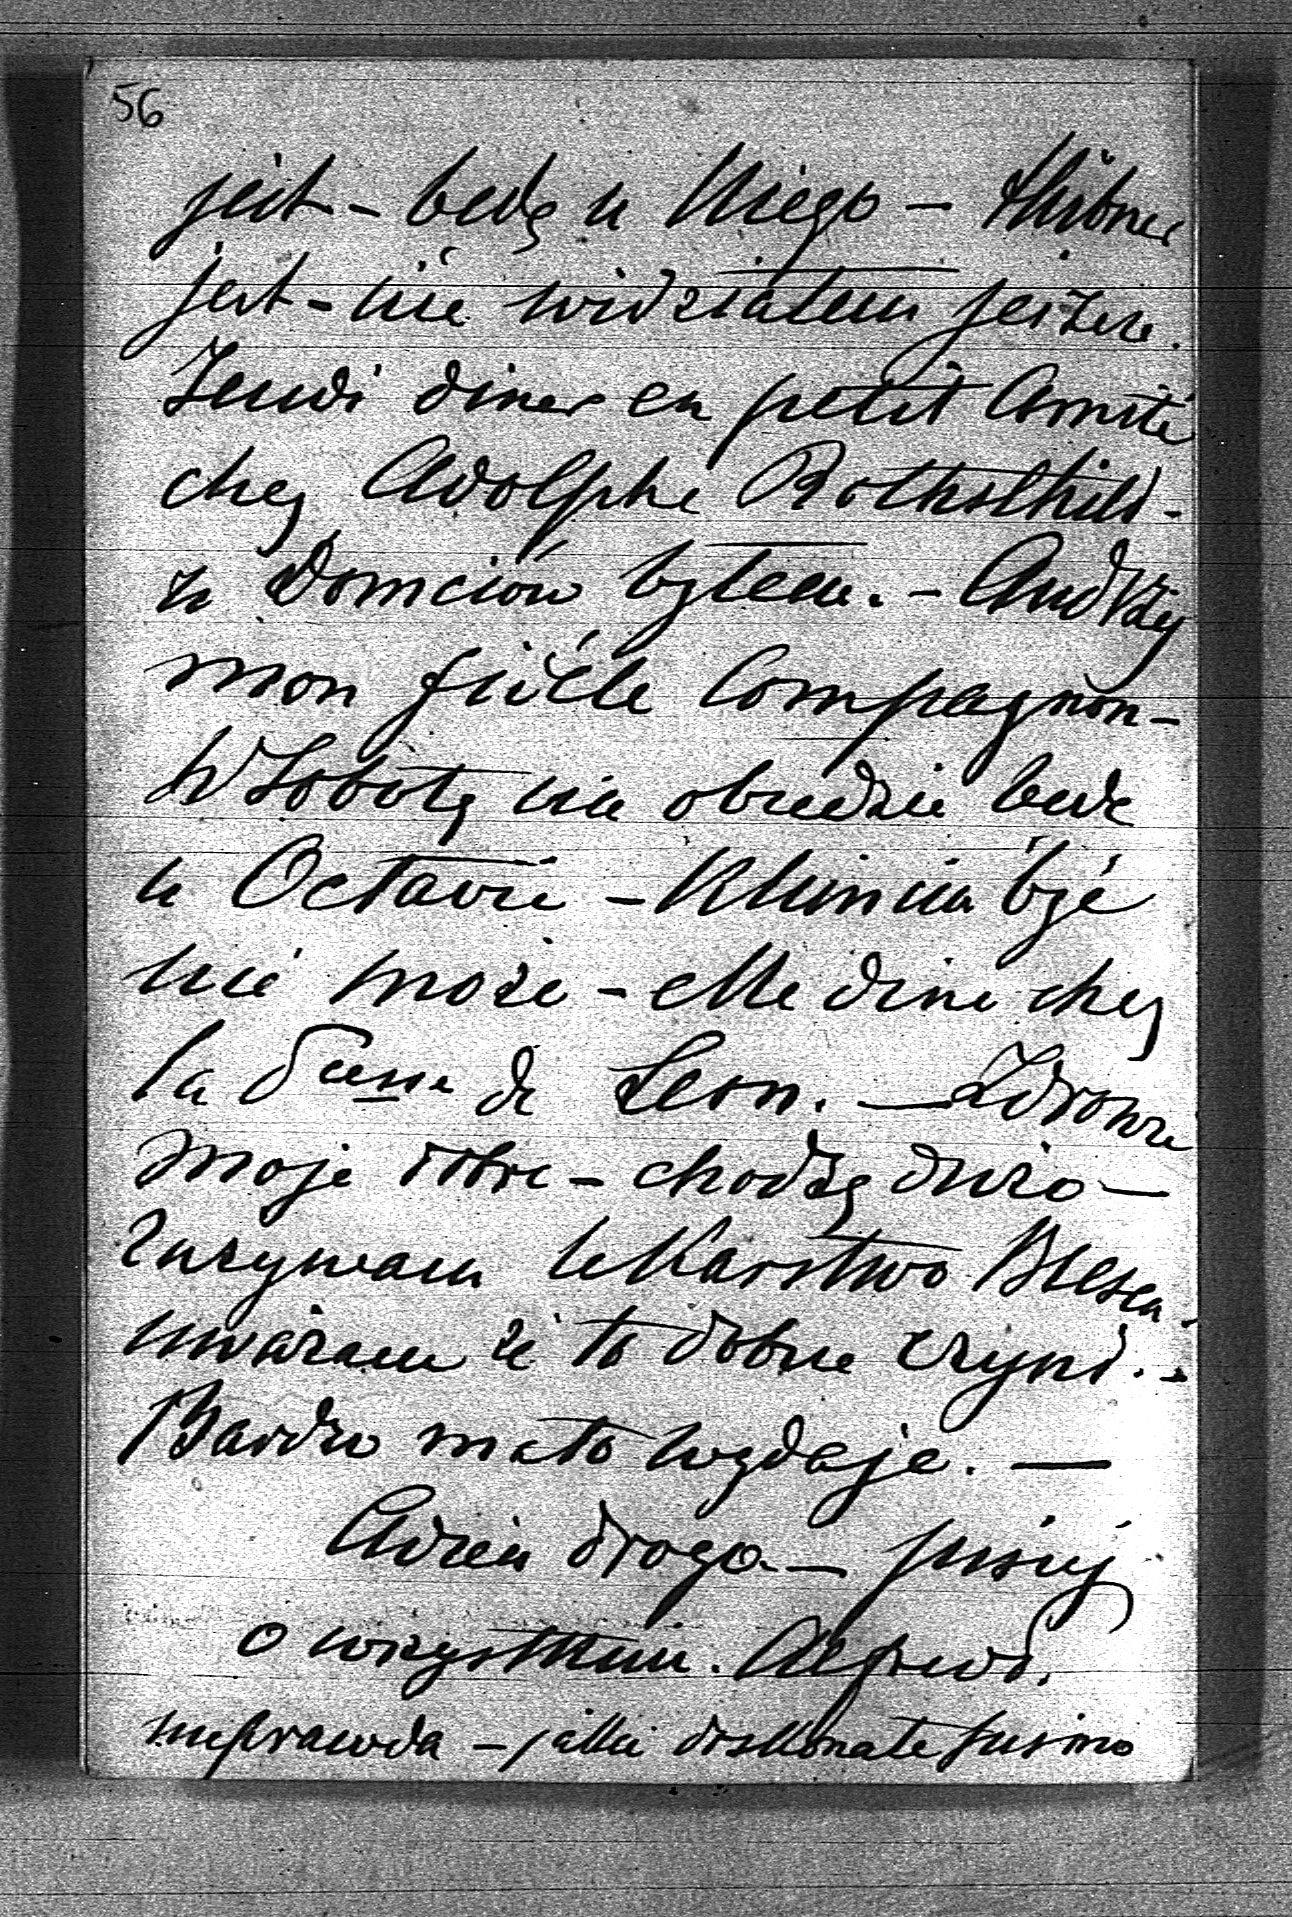 56
jest - będę u Niego - Hübner
jest - nie widziałem jeszcze.
Jeudi diner en petit Comité
chez Adolphe Rothschild -
u Domciów byłem. - Andrzej
mon fidèle Compagnon -
W Sobotę na obiedzie będę
u Octavie - Klimcia być
nie może - elle dine chez
la de Leon. - Zdrowie
moje dobre - chodzę dużo -
Zużywam lekarstwo
uważam że to dobrze czyni. -
Bardzo mało wydaje. -
Adieu droga - pisuj
o wszystkim. Alfred.
nieprawda - jakie doskonałe pismo